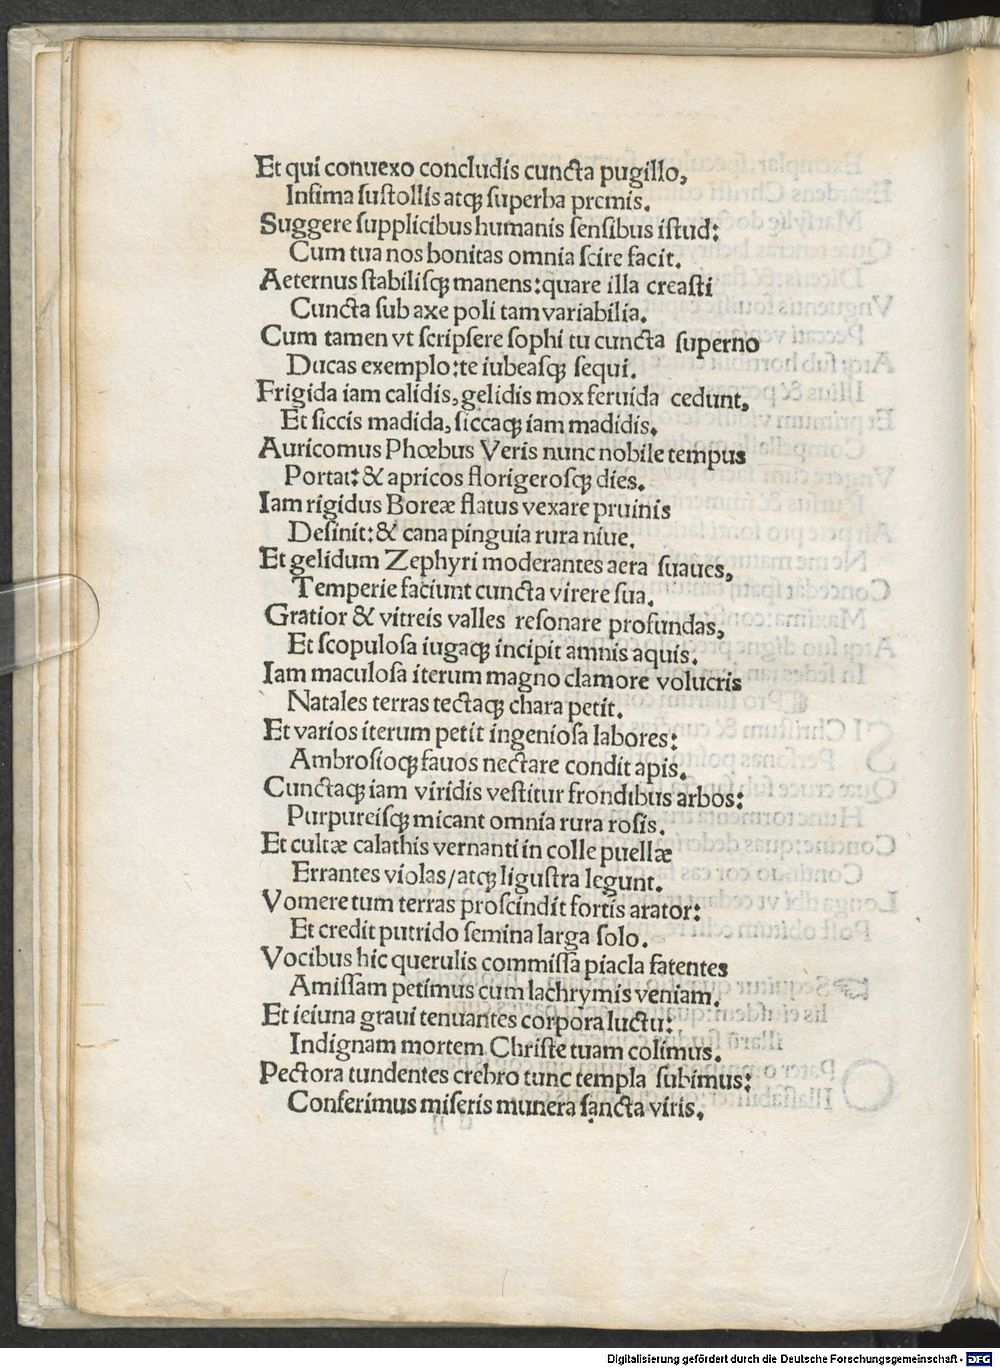 Et qui conuexo concludis cuncta pugillo,
Infima ſuſtollis atqꝫ ſuperba premis.
Suggere ſupplicibus humanis ſenſibus iſtud:
Cum tua nos bonitas omnia ſcire facit.
Aeternus ſtabiliſqꝫ manens: quare illa creaſti
Cuncta ſub axe poli tam variabilia.
Cum tamen vt ſcripſere ſophi tu cuncta ſuperno
Ducas exemplo: te iubeaſqꝫ ſequi.
Frigida iam calidis, gelidis mox feruida cedunt,
Et ſiccis madida, ſiccaqꝫ iam madidis.
Auricomus Phœbus Veris nunc nobile tempus
Portat: & apricos florigeroſqꝫ dies.
Iam rigidus Boreæ flatus vexare pruinis
Deſinit: & cana pinguia rura niue.
Et gelidum Zephyri moderantes aera ſuaues,
Temperie faciunt cuncta virere ſua.
Gratior & vitreis valles reſonare profundas,
Et ſcopuloſa iugaqꝫ incipit amnis aquis.
Iam maculoſa iterum magno clamore volucris
Natales terras tectaqꝫ chara petit.
Et varios iterum petit ingenioſa labores:
Ambroſioqꝫ fauos nectare condit apis.
Cunctaqꝫ iam viridis veſtitur frondibus arbos:
Purpureiſqꝫ micant omnia rura roſis.
Et cultæ calathis vernanti in colle puellæ
Errantes violas/atqꝫ liguſtra legunt.
Vomere tum terras proſcindit fortis arator:
Et credit putrido ſemina larga ſolo.
Vocibus hic querulis commiſſa piacla fatentes
Amiſſam petimus cum lachrymis veniam.
Et ieiuna graui tenuantes corpora luctu:
Indignam mortem Chriſte tuam colimus.
Pectora tundentes crebro tunc templa ſubimus:
Conferimus miſeris munera ſancta viris.
Digitalisierung gefördert durch die Deutsche Forschungsgemeinschaft - DFG